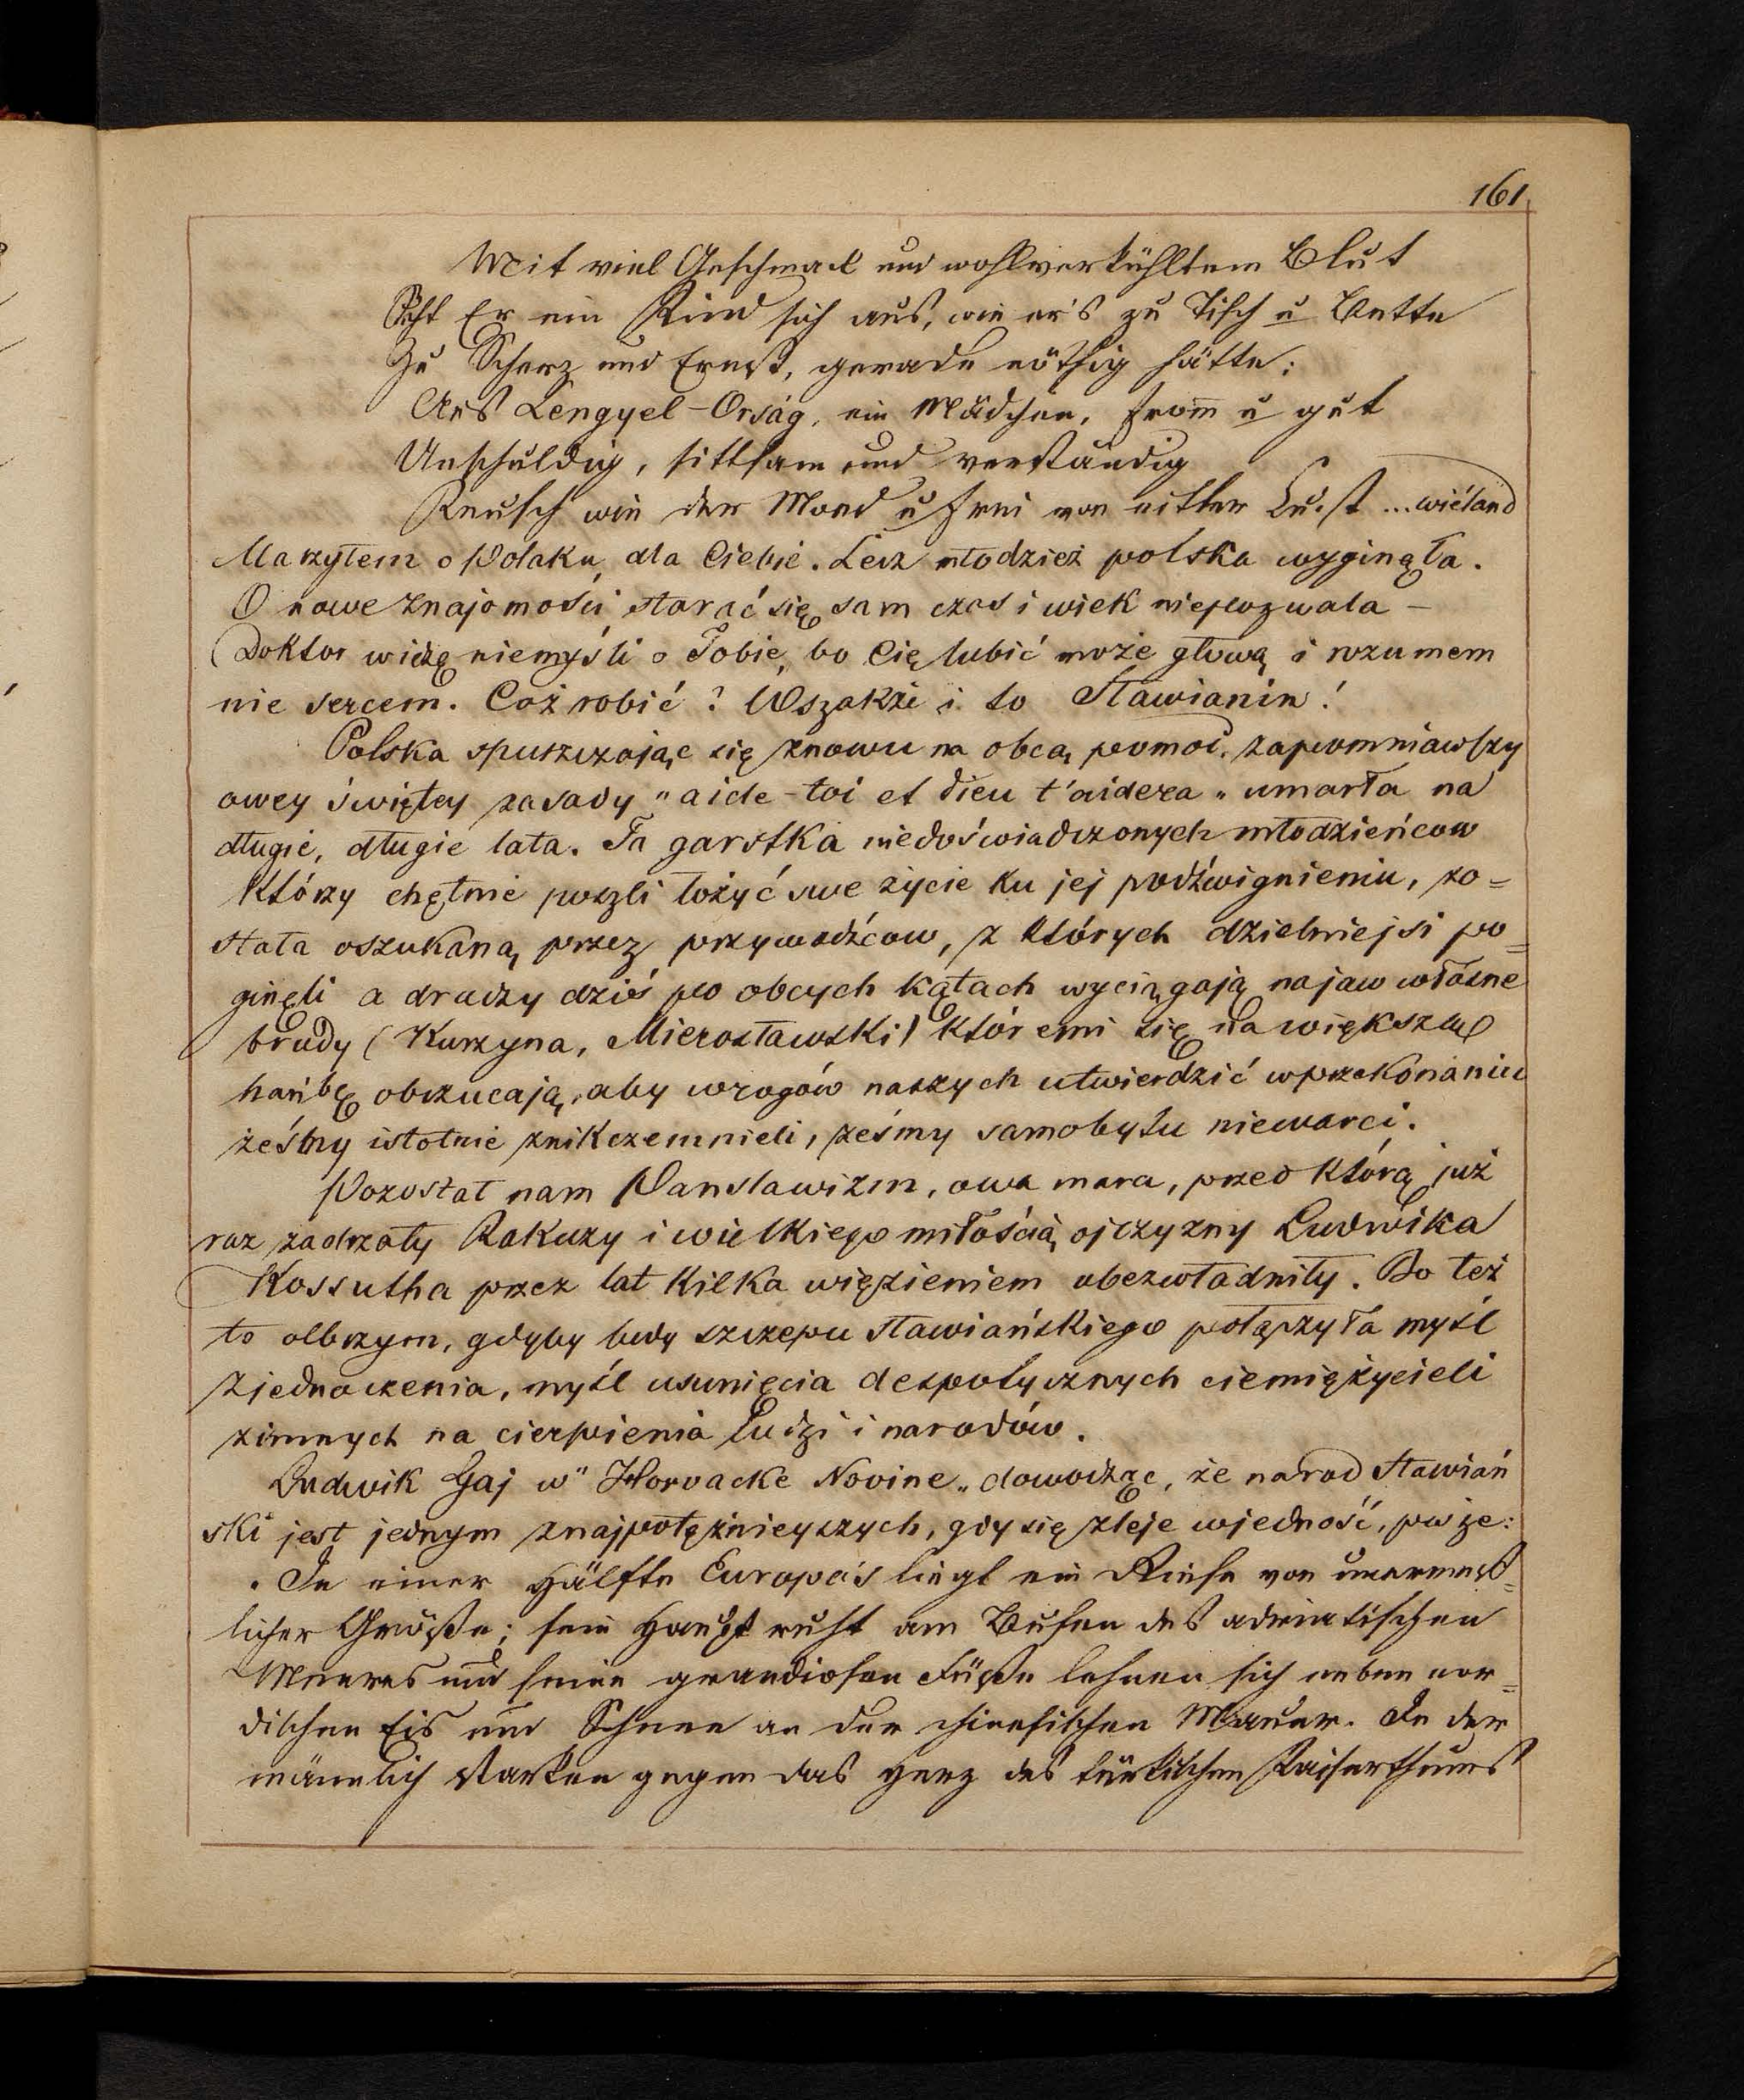 161
Mit viel Geschmack und wohlverkühltem Blut
Sucht Er ein Kind sich aus, wie er's zu Tisch u Bette
Zu Scherz und Ernst, gerade nöthig hätte:
Aus Lengyel-Orság, ein Mädchen, from̄ u gut
Unschuldig, sittsam und verständig
Keusch wie der Mond u frei von eitler Lust ... wiéland
Marzyłem o Polaku, dla Ciebie. Lecz młodzież polska wyginęła.
O nowe znajomości starać się, sam czas i wiek niepozwala –
Doktor widzę niemyśli o Tobie, bo Cię lubić może głową i rozumem
nie sercem. Coż robić? Wszakże i to Sławianin!
Polska spuszczając się znowu na obcą pomoc, zapomniawszy
owey świętey zasady "aide-toi et dieu t'aidera" umarła na
długie, długie lata. Ta garstka niedoświadczonych młodzieńcow
którzy chętnie poszli łożyć swe życie ku jej podźwignieniu, zo=
stała oszukaną przez przywodźcow, z których dzielniejsi po=
ginęli a drudzy dziś po obcych kątach wyciągają najaw własne
brudy (Kurzyna, Mierosławski) któremi się na większą
hańbę obrzucają, aby wrogów naszych utwierdzić wprzekonaniu
żeśmy istotnie znikczemnieli, żeśmy samobytu niewarci.
Pozostał nam Panslawizm, owa mara, przed którą już
raz zadrzały Rakuzy i wielkiego miłością ojczyzny Ludwika
Kossutha przez lat kilka więzieniem obezwładniły. Bo też
to olbrzym, gdyby ludy szczepu sławiańskiego połączyła myśl
zjednoczenia, myśl usunięcia despotycznych ciemiężycieli
zimnych na cierpienia ludzi i narodów.
Ludwik Gaj w "Horvacke Novine" dowodząc, że narod sławiań
ski jest jednym znajpotężnieyszych, gdy się zleje wjedność, pisze:
"In einer Hälfte Europa's liegt ein Riese von unermeß=
licher Größe; sein Haupt ruht am Busen des adriatischen
Meeres und seine grandiosen Füße lehnen sich neben nor=
dischen Eis und Schnee an der chinesischen Mauer. In der
männlich starken gegen das Herz des türkischen Kaiserthums